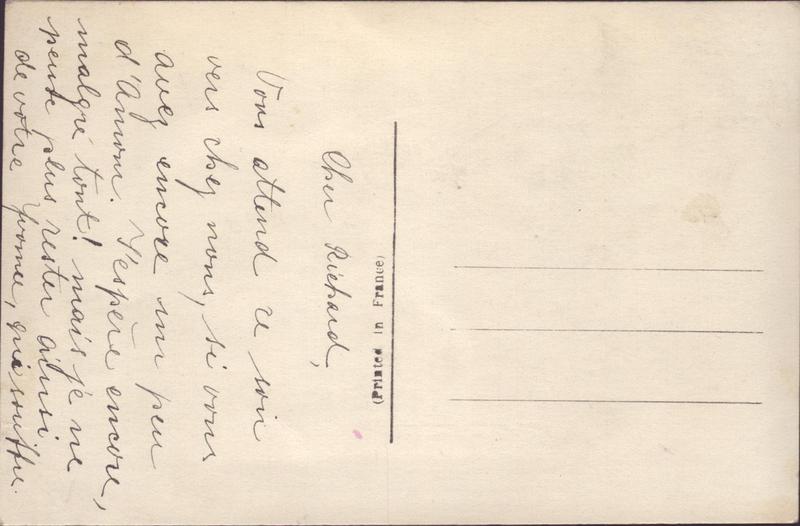 Cher Richard,
Vous attend ce soir
vers chez nous, si vous
avez encore un peu
d'Amour. J'espère encore,
malgré tout! mais je ne
peux plus rester ainsi
de votre Yvonne, qui souffre.
(Printed in France)